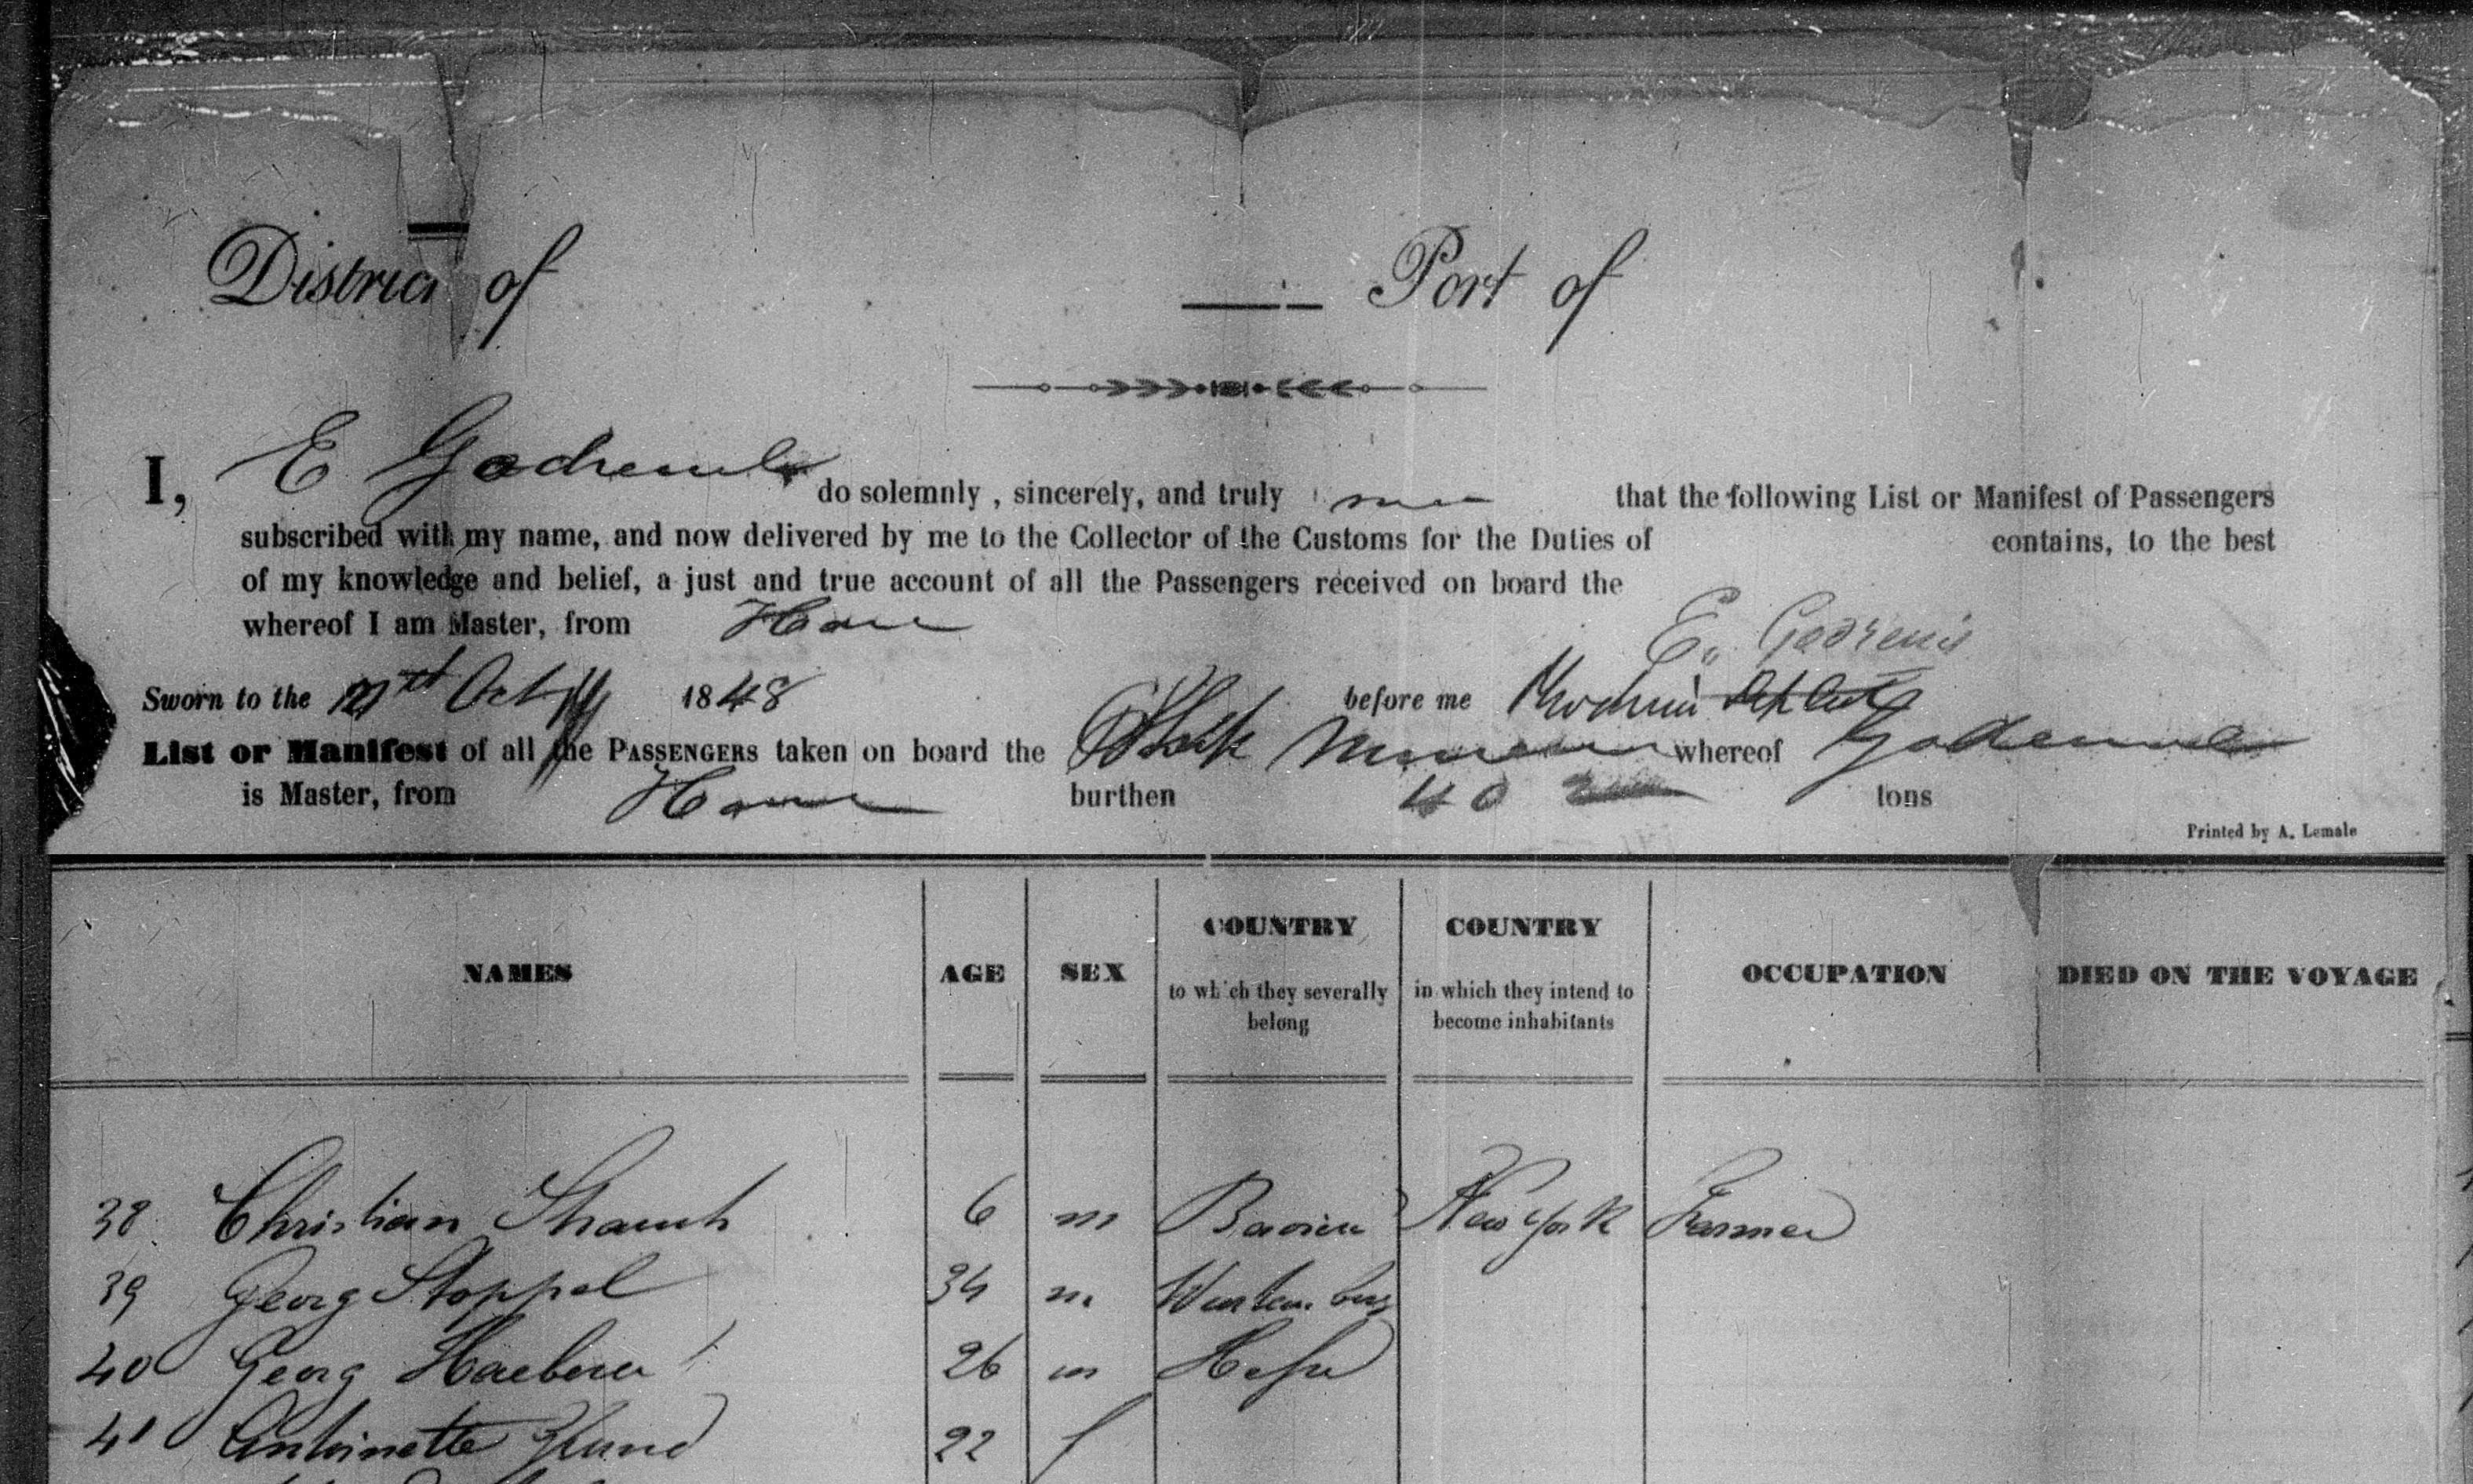 District of Port of
I, E do solemnly, sincerely, and truly that the following List or Manifest of Passengers
subscribed with my name, and now delivered by me to the Collector of the Customs for the Duties of contains, to the best
of my knowledge and belief, a just and true account of all the Passengers received on board the
whereof I am Master, from Havre
E.
Sworn to the Oct 1848 before me
List or Manifest of all the PASSENGERS taken on board the whereof
is Master, from Havre burthen tons
Printed by A. Lemale
NAMES AGE SEX COUNTRY to which they severally belong COUNTRY in which they intend to become inhabitants OCCUPATION DIED ON THE VOYAGE
38 Christian 6 m Bavaria New York Farmer
39 Georg Stoppel 34 m Wurtemburg
40 Georg 26 m Hesse
41 Antoinette 22 f